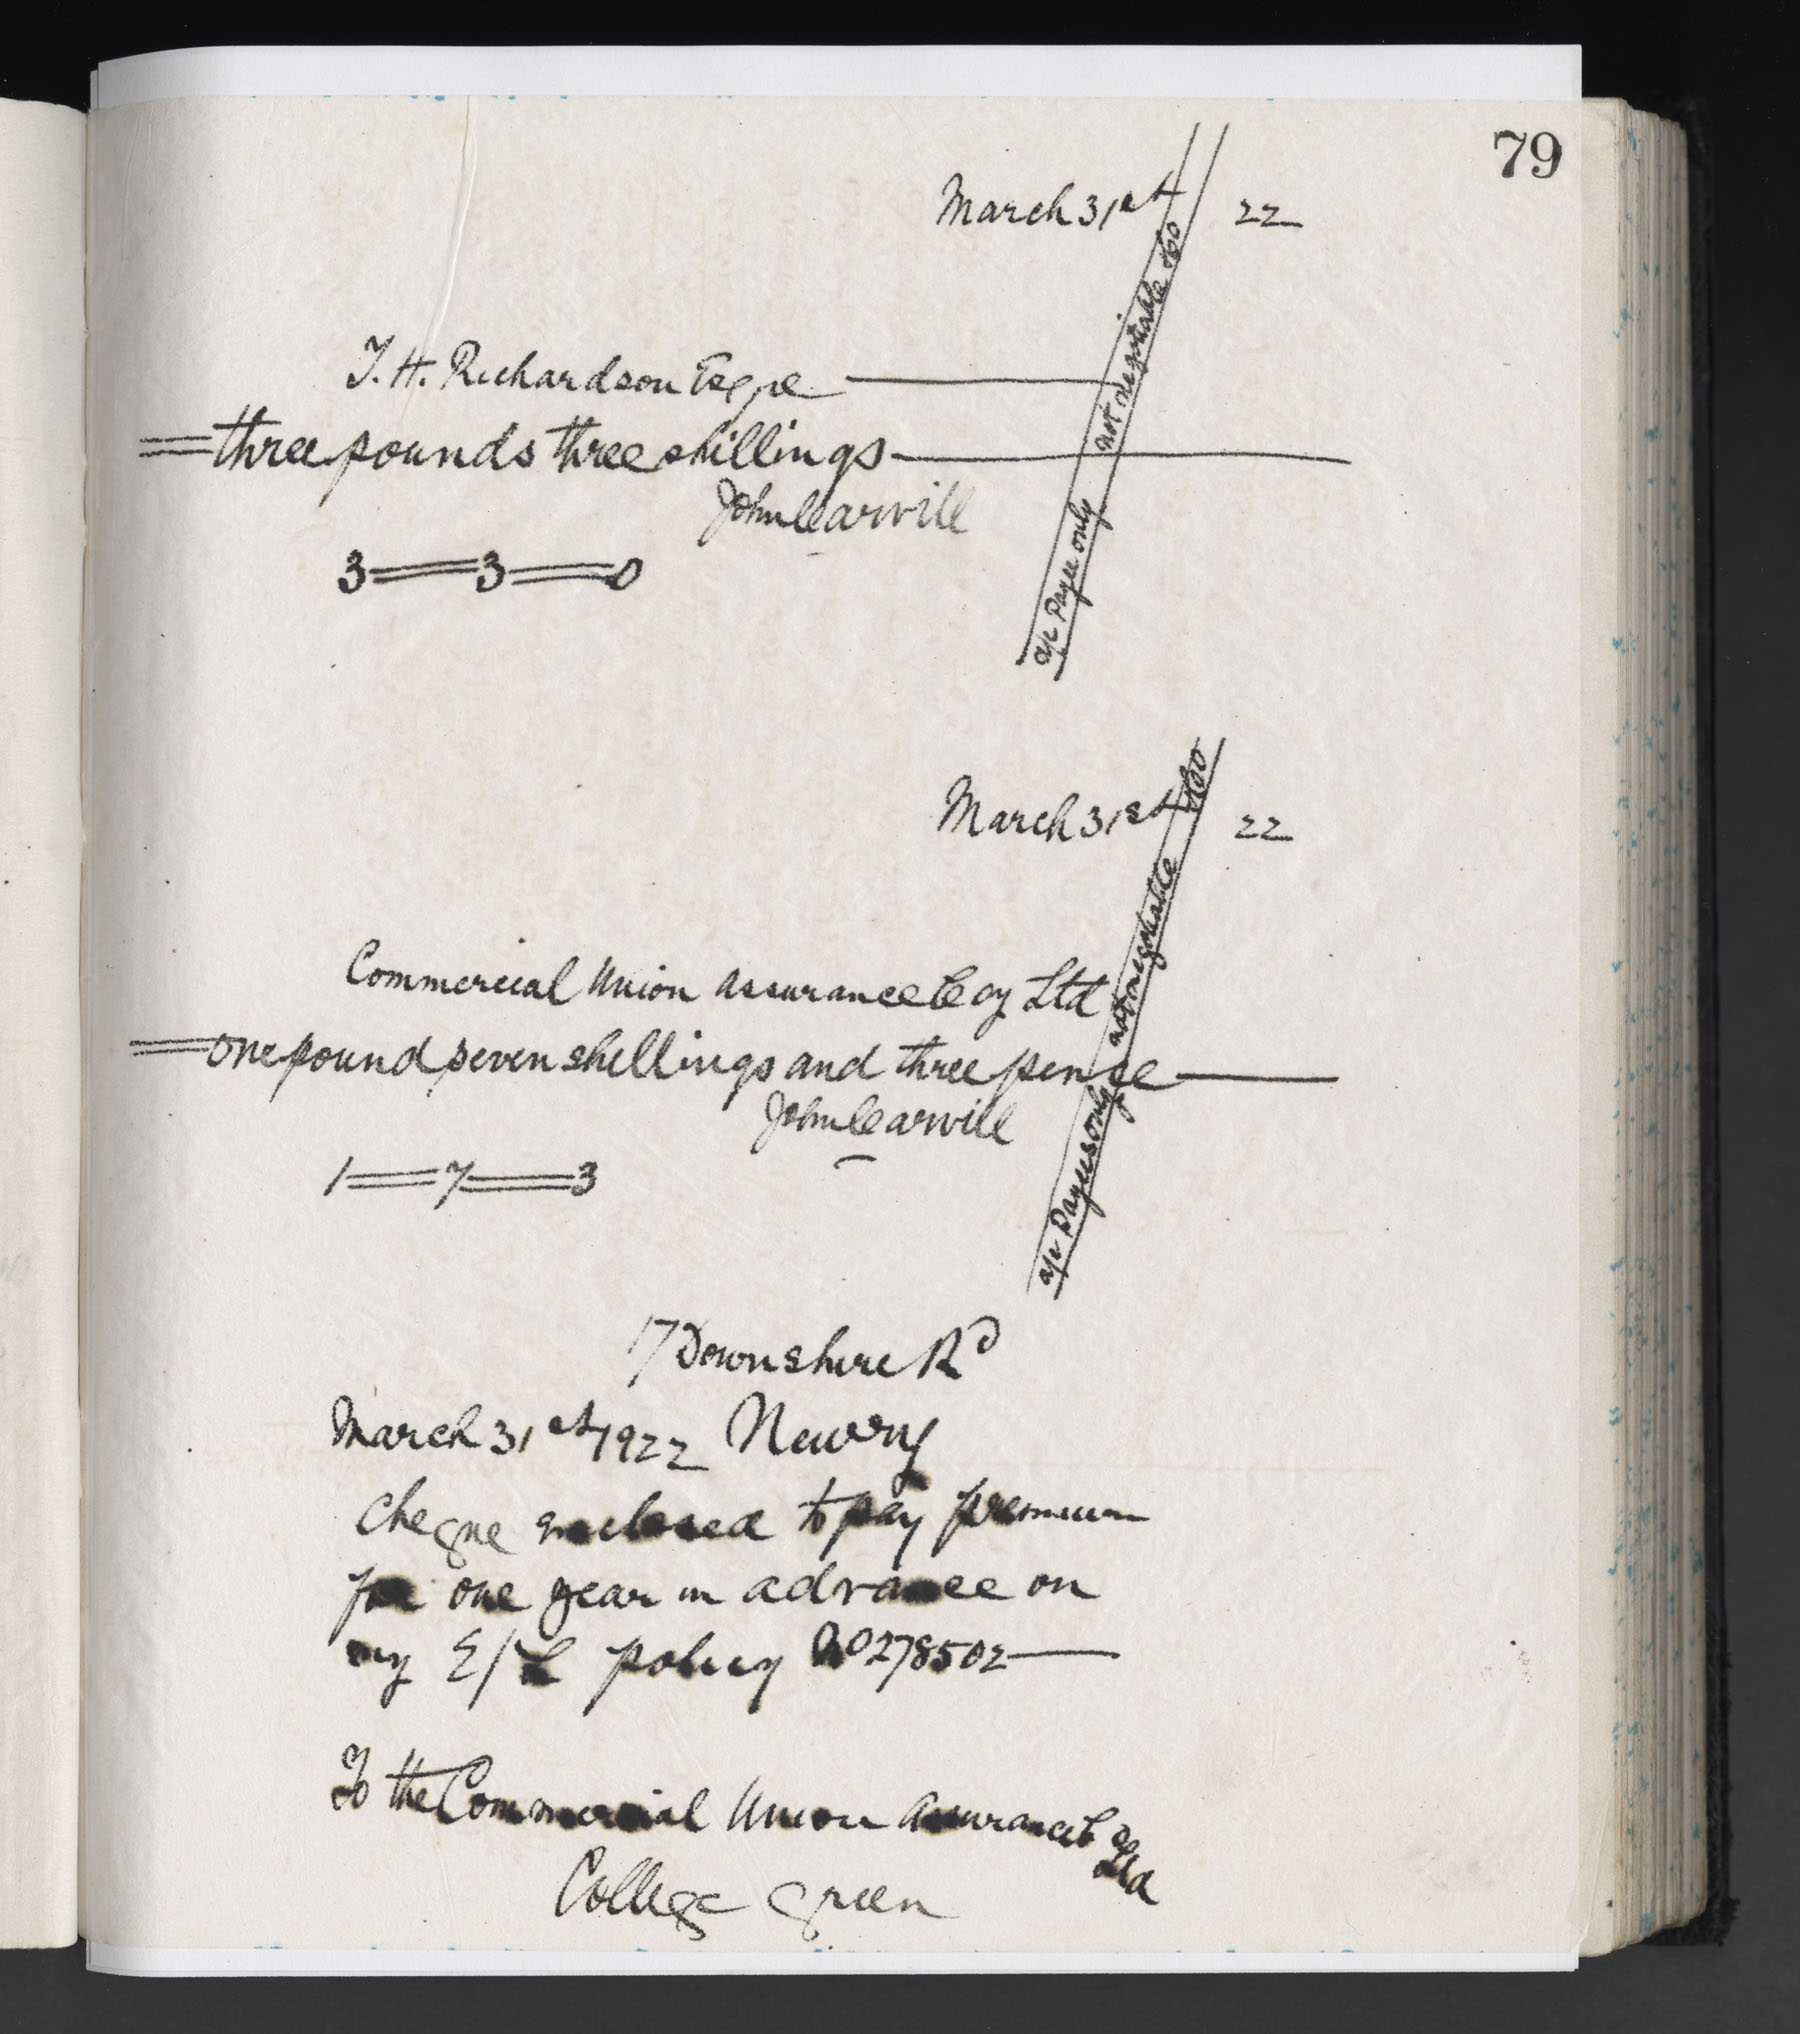 79
March 31st 22
T. H. Richardson Esqre
three pounds three shillings
John Carvill
3 3 0
a/c Payee only not negotiable &Co
March 31st 22
Commercial Union Assurance Coy Ltd
one pound seven shillings and three pence
John Carvill
1 7 3
a/c Payees only not negotiable &Co
17 Downshire Rd
March 31st 1922 Newry
Cheque enclosed to pay premium
for one year in advance on
my E/L policy No 278502
To the Commercial Union Assurance Co Ltd
College Green